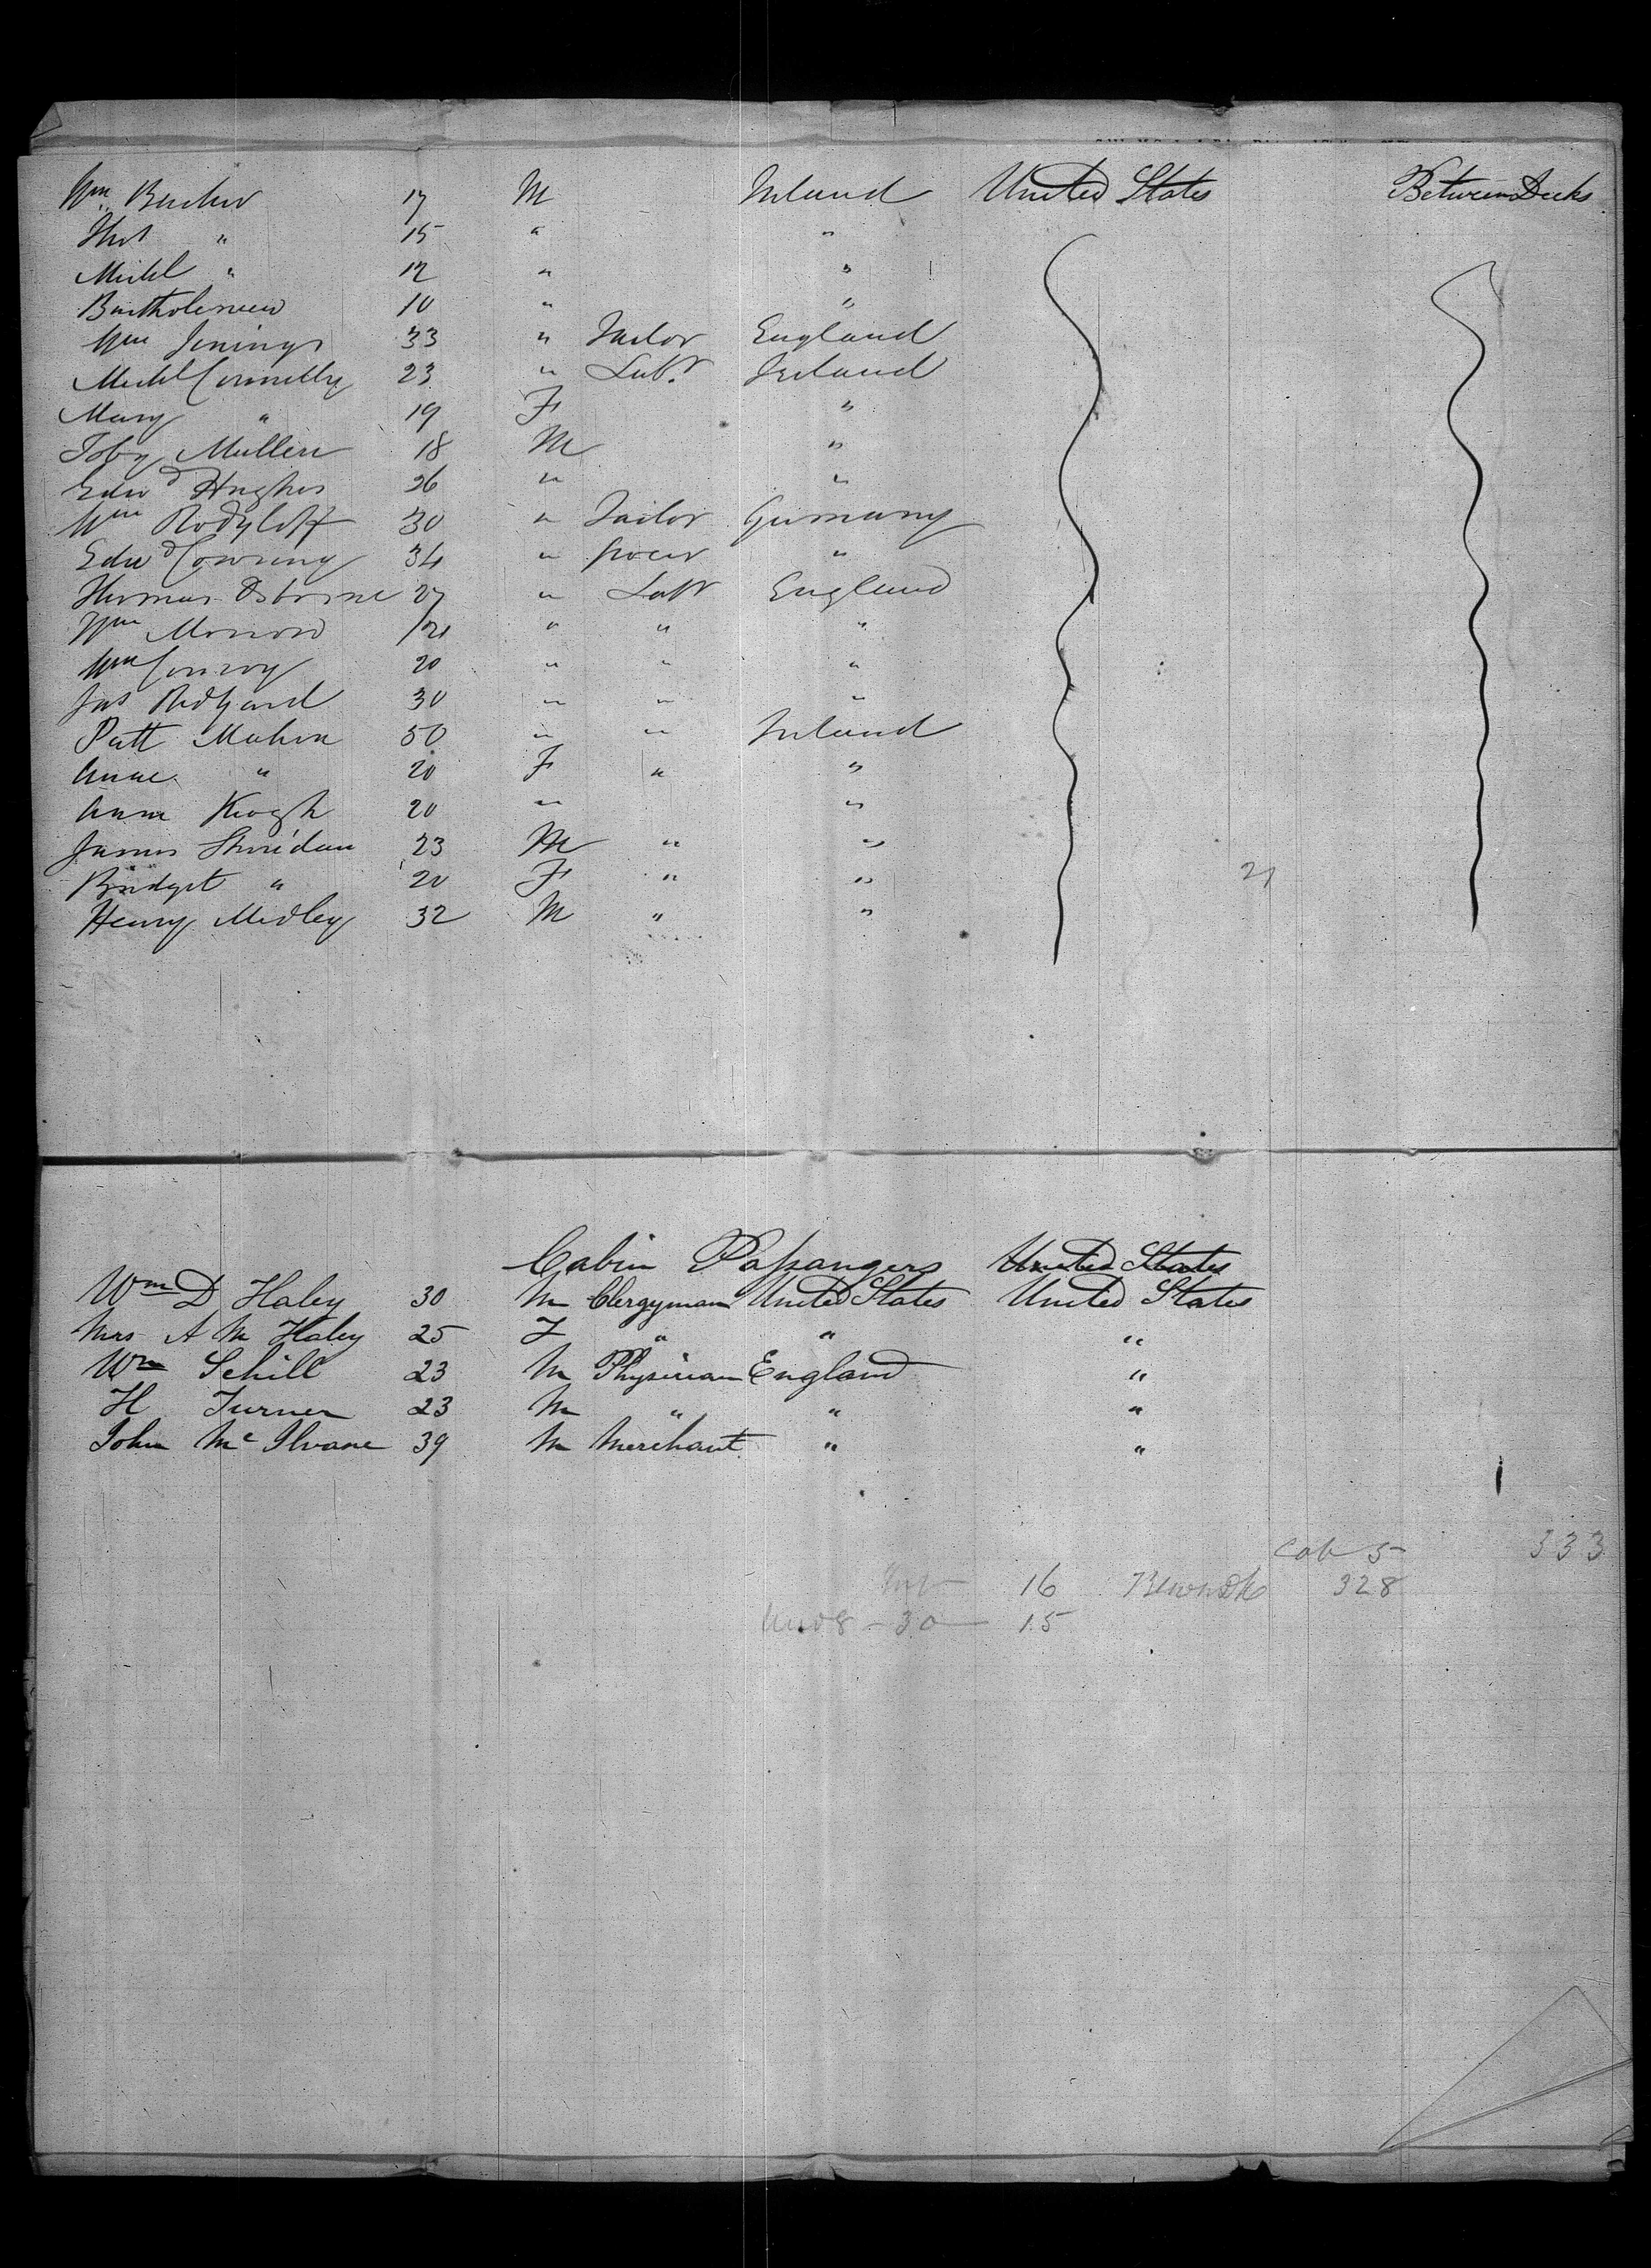 Wm Burke 17 M Ireland United States Between Decks
Thos " 15 " "
Michl " 12 " "
Bartholemew 10 " "
Wm Jenings 33 " Tailor England
Michl Connelly 23 " Labr Ireland
Mary " 19 F "
Toby Mullen 18 M "
Edwd Hughes 26 " "
Wm 30 " Tailor Germany
Edwd 34 " Grocer "
Thomas Osborne 27 " Labr England
Wm Morrow 21 " " "
Wm Conroy 20 " " "
Jas Redyard 30 " " "
Patt Mahon 50 " " Ireland
Anne " 20 F " "
Anne Keogh 20 " "
James Sheridan 23 M " "
Bridget " 20 F " " 21
Henry Medley 32 M " "
Cabin Passangers United States
Wm D Haley 30 M Clergyman United States United States
Mrs A M Haley 25 F " " "
Wm Schill 23 M Physician England "
H Turner 23 M " " "
John Mc Ilvane 39 M Merchant " "
Cab 5 333
16 328
Und 8 - 30 15